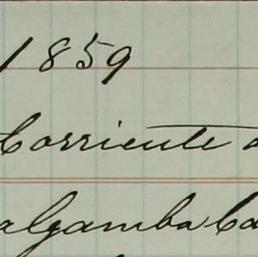 1859
Corriente a
algamba Ca